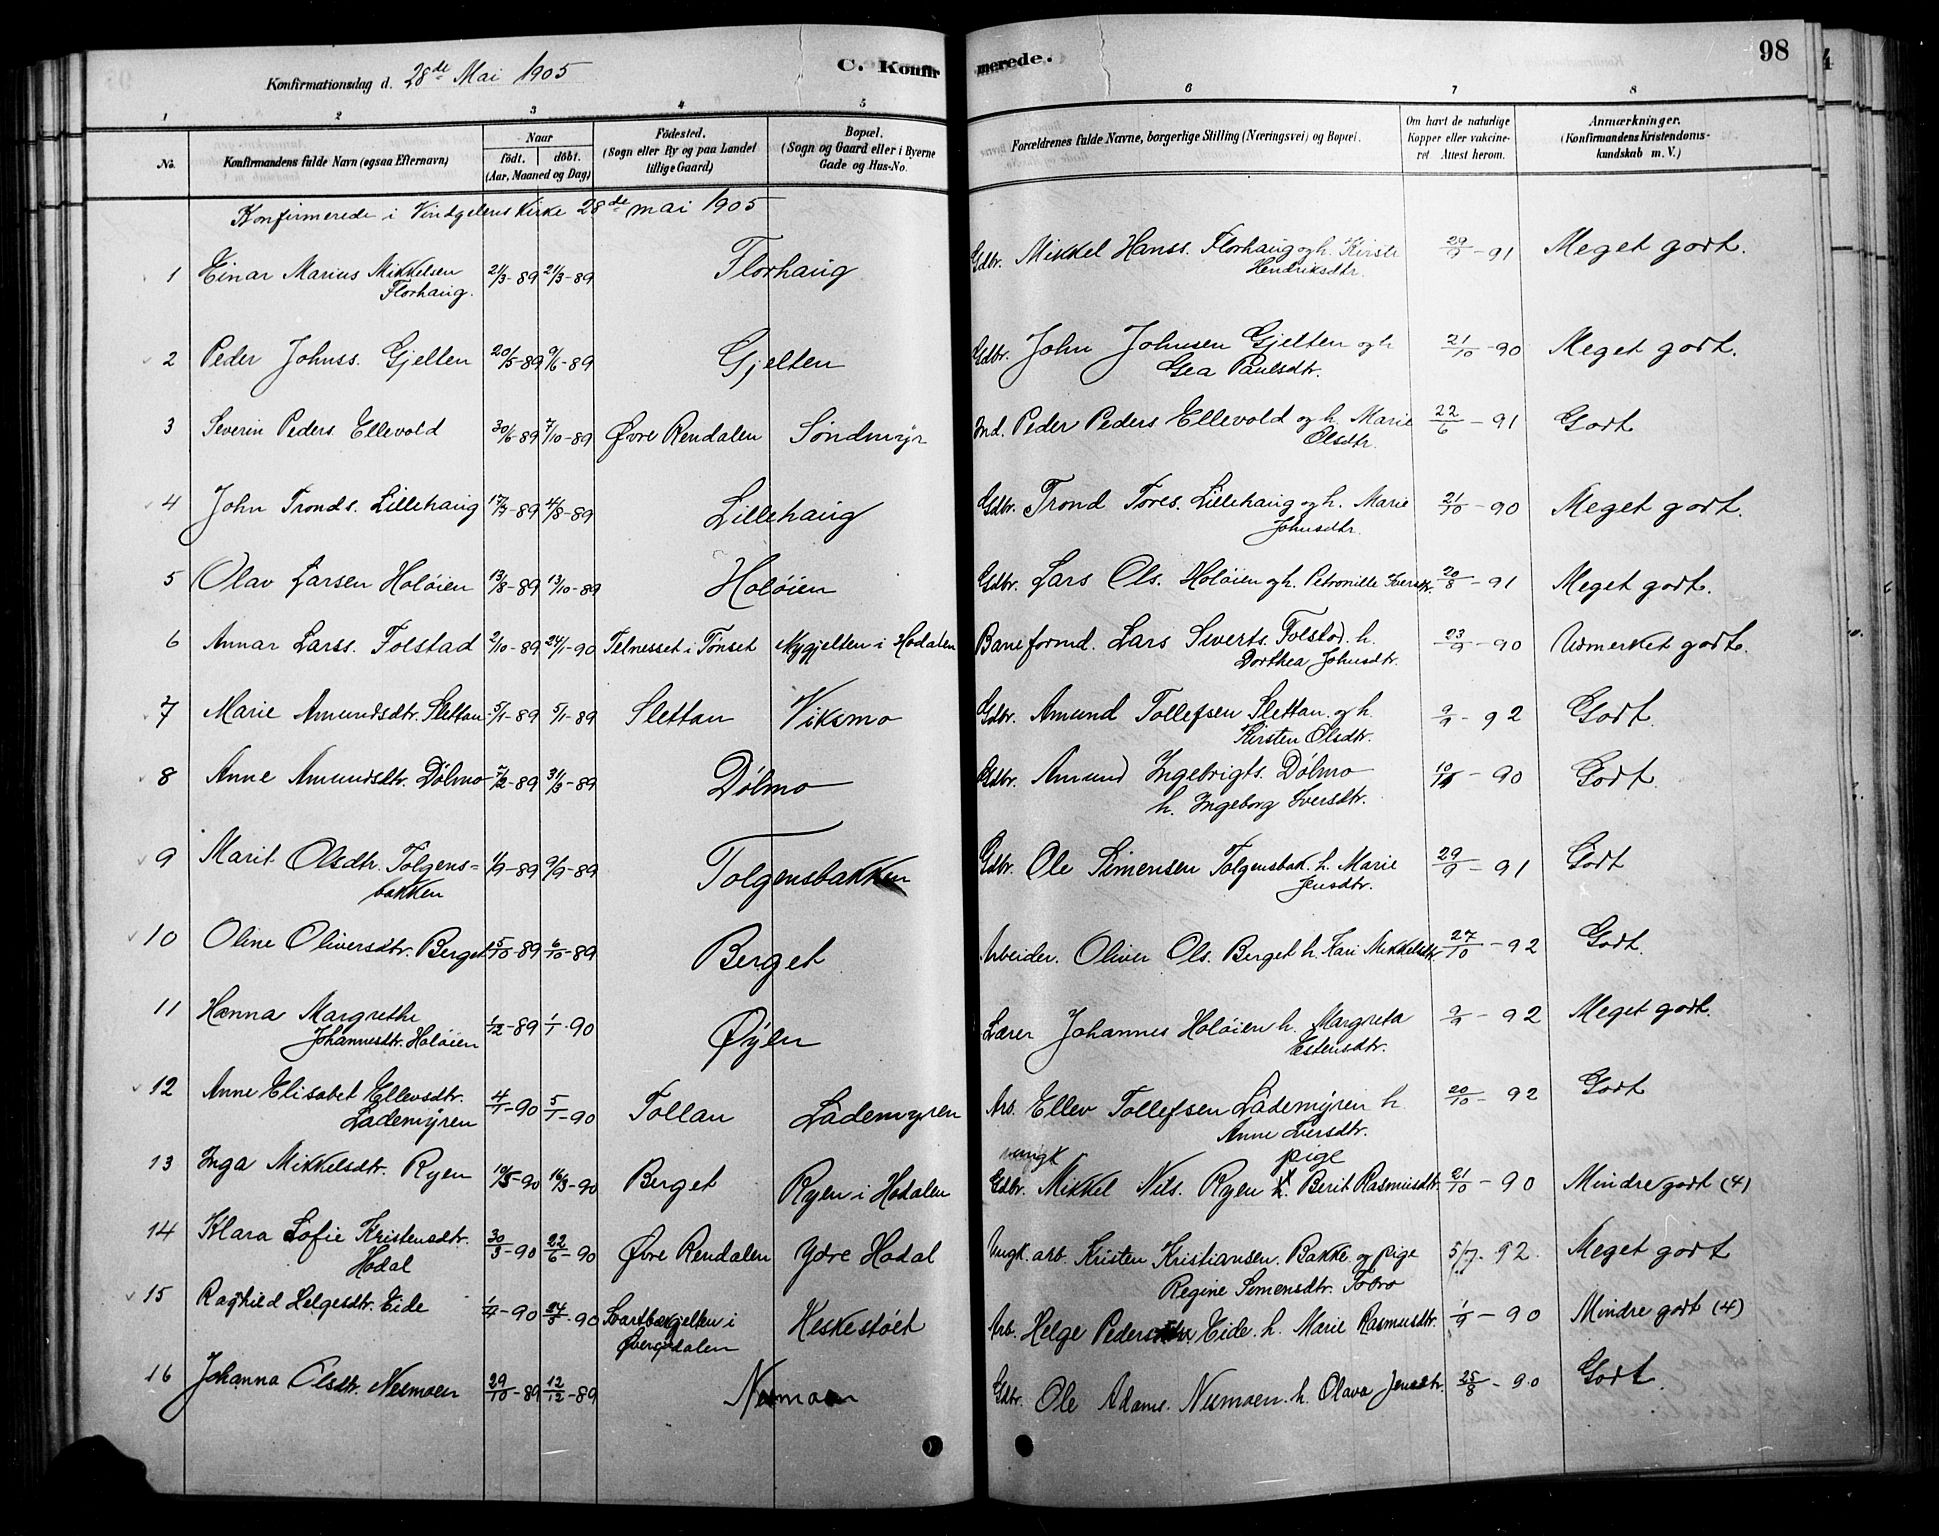 98
C. Konfirmerede.
Konfirmationsdag d. 28de Mai 1905
1 2 3 4 5 6 7 8
No. Konfirmandens fulde Navn (ogsaa Efternavn) Naar födt. döbt. (Aar, Maaned og Dag) Födested. (Sogn eller By og paa Landet tillige Gaard) Bopæl. (Sogn og Gaard eller i Byerne Gade og Hus-No. Forældrenes fulde Navne, borgerlige Stilling (Næringsvei) og Bopæl. Om havt de naturlige Kopper eller vaccineret Attest herom. Anmærkninger. (Konfirmandens Kristendomskundskab m. V.)
Konfirmerede i Vindgelens Kirke 28de mai 1905
1 Einar Marius Mikkelsen Florhaug. 21/3-89 21/3-89 Florhaug Gdbr. Mikkel Hanss. Florhaug og h. Kirsti Hendriksdtr. 29/9-91 Meget godt.
2 Peder Johnss. Gjelten 20/5-89 9/6-89 Gjelten Gdbr. John Johnsen Gjelten og h Gea Paulsdtr. 21/10-90 Meget godt.
3 Severin Peders. Ellevold 30/6-89 7/10-89 Øvre Rendalen Søndmyr Ind. Peder Peders Ellevold og h. Marie Olsdtr. 22/6-91 Godt
4 John Tronds. Lillehaug 17/7-89 4/8-89 Lillehaug Gdbr. Trond Tores. Lillehaug og h. Marie Johnsdtr. 21/10-90 Meget godt.
5 Olav Larsen Holøien 13/8-89 13/10-89 Holøien Gdbr. Lars Ols. Holøien og h. Petronille Iversdtr. 20/8-91 Meget godt.
6 Annar Larss. Tolstad 2/10-89 24/1-90 Telnesset i Tønset Nygjelten i Hodalen Baneformd. Lars Siverts. Tolstad. h. Dorthea Johnsdtr. 23/9-90 Udmerket godt.
7 Marie Amundsdtr. Slettan 5/1-89 5/1-89 Slettan Viksmo Gdbr. Amund Tollefsen Slettan og h. Kirsten Olsdtr. 9/9-92 Godt.
8 Anne Amundsdtr. Dølmo 7/2-89 31/3-89 Dølmo Gdbr. Amund Ingebrigts. Dølmo h. Ingeborg Iversdtr. 10/10-90 Godt.
9 Marit Olsdtr. Tolgens= bakken 1/9-89 9/9-89 Tolgensbakken Gdbr. Ole Simensen Tolgensbak. h. Marie Jensdtr. 29/9-91 Godt
10 Oline Oliversdtr. Berget 5/10-89 6/10-89 Berget Arbeider. Oliver Ols. Berget h. Kari Mikkelsdtr. 27/10-92 Godt.
11 Hanna Margrethe Johannesdtr. Holøien 1/12-89 1/1-90 Øyen Lærer Johannes Holøien h. Margreta Estensdtr. 9/9-92 Meget godt.
12 Anne Elisabet Ellevsdtr. Lademyren 4/1-90 5/1-90 Tollan Lademyren Arb. Ellev Tollefsen Lademyren h. Anne Iversdtr. 20/10-92 Godt
13 Inga Mikkelsdtr. Ryen 16/3-90 Berget Ryen i Hodalen ungk Gdbr. Mikkel Nils. Ryen pige Berit Rasmusdtr. 21/10-90 Mindre godt (4)
14 Klara Sofie Kristensdtr. Hodal 30/3-90 22/6-90 Øvre Rendalen Ydre Hodal Ungk. arb. Kristen Kristiansen. Bakke og pige Regine Simensdtr. Tobro 5/7-92. Meget godt
15 Raghild Helgesdtr. Eide 1/4-90 24/5-90 Heskestøet Arb. Helge Peders Eide. h. Marie Rasmusdtr. 1/9-90 Mindre godt (4)
16 Johanna Olsdtr. Nesmoen 29/10-89 12/12-89 Nesmoen Gdbr. Ole Adams. Nesmoen. h. Olava Jensdtr. 25/8-90 Godt.